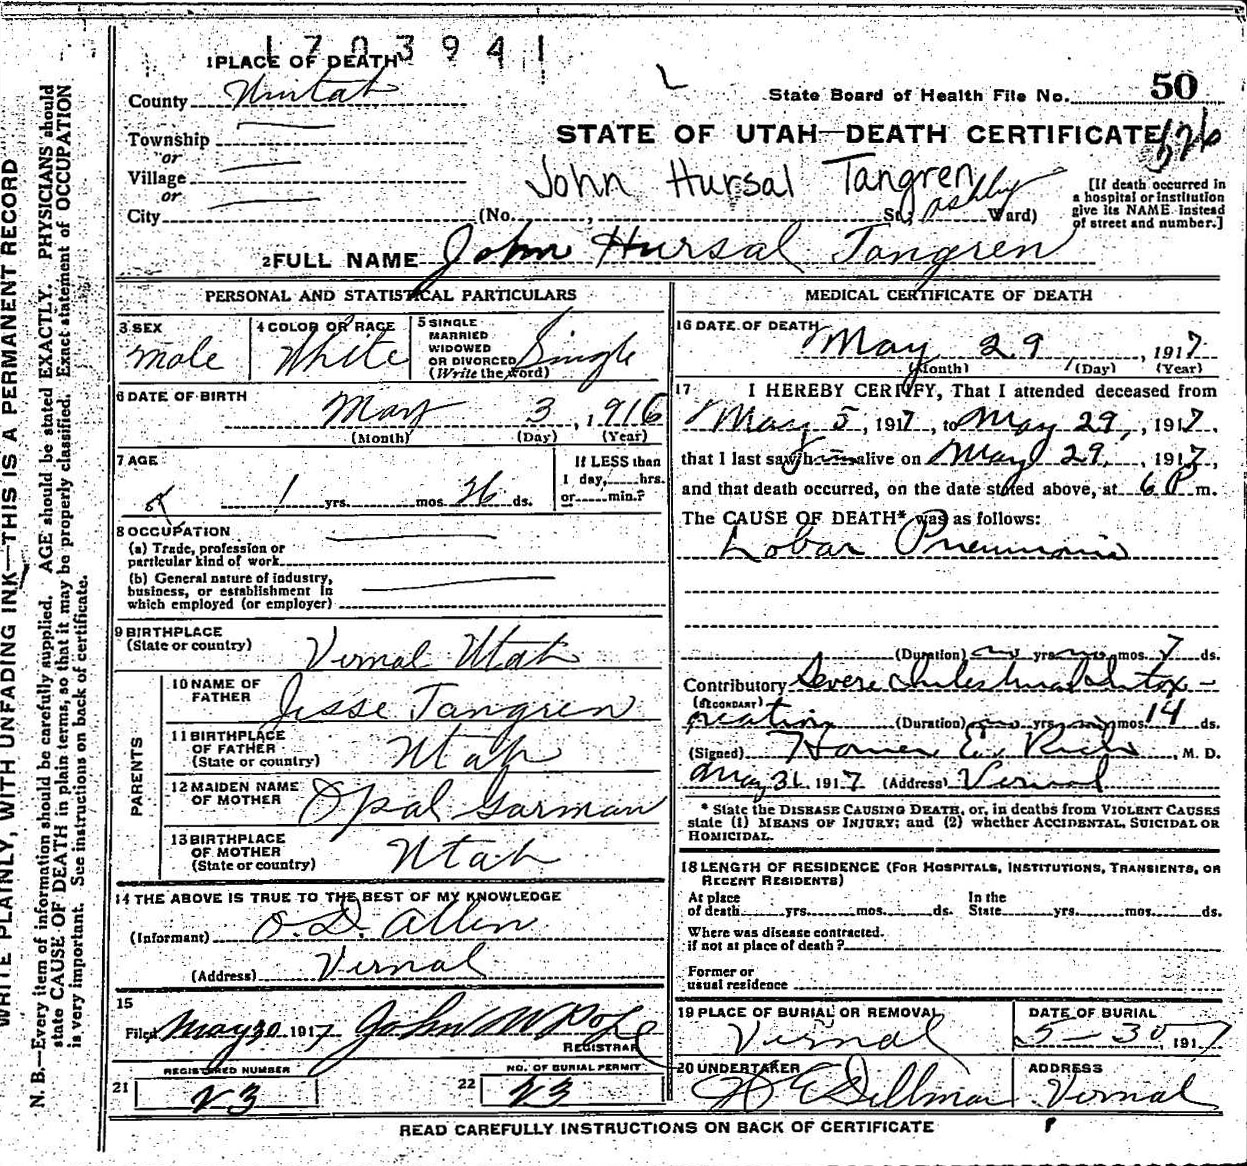 1703941
1 PLACE OF DEATH
County Uintah
State Board of Health File No. 50
Township
STATE OF UTAH—DEATH CERTIFICATE
or
Village
John Hursal Tangren
or
City (No. , St.; Ashley Ward)
[If death occurred in
a hospital or institution
give its NAME instead
of street and number.]
2 FULL NAME John Hursal Tangren
PERSONAL AND STATISTICAL PARTICULARS
3 SEX
male
4 COLOR OR RACE
White
5 SINGLE
MARRIED
WIDOWED
OR DIVORCED
(Write the word)
Single
6 DATE OF BIRTH
May 3, 1916
(Month) (Day) (Year)
7 AGE
1 yrs. mos. 26 ds.
If LESS than
1 day, hrs.
or min.?
8 OCCUPATION
(a) Trade, profession or
particular kind of work
(b) General nature of industry,
business, or establishment in
which employed (or employer)
9 BIRTHPLACE
(State or country)
Vernal Utah
PARENTS
10 NAME OF
FATHER
Jesse Tangren
11 BIRTHPLACE
OF FATHER
(State or country)
Utah
12 MAIDEN NAME
OF MOTHER
Opal Garman
13 BIRTHPLACE
OF MOTHER
(State or country)
Utah
14 THE ABOVE IS TRUE TO THE BEST OF MY KNOWLEDGE
(Informant) O. D. Allen
(Address) Vernal
15
Filed May 30 1917 John W Pope
REGISTRAR
REGISTERED NUMBER
21 23
NO. OF BURIAL PERMIT
22 23
MEDICAL CERTIFICATE OF DEATH
16 DATE OF DEATH
May 29, 1917
(Month) (Day) (Year)
17 I HEREBY CERTIFY, That I attended deceased from
May 5, 1917, to May 29, 1917,
that I last saw him alive on May 29, 1917,
and that death occurred, on the date stated above, at 6 P m.
The CAUSE OF DEATH* was as follows:
Lobar Pneumonia
(Duration) yrs. mos. 7 ds.
Contributory Severe Intestinal Intox-
(SECONDARY)
ication (Duration) yrs. mos. 14 ds.
(Signed) Homer E. Rich, M. D.
May 31 1917 (Address) Vernal
* State the DISEASE CAUSING DEATH, or, in deaths from VIOLENT CAUSES
state (1) MEANS OF INJURY; and (2) whether ACCIDENTAL, SUICIDAL OR
HOMICIDAL.
18 LENGTH OF RESIDENCE (FOR HOSPITALS, INSTITUTIONS, TRANSIENTS, OR
RECENT RESIDENTS)
At place
of death yrs. mos. ds.
In the
State yrs. mos. ds.
Where was disease contracted.
if not at place of death?
Former or
usual residence
19 PLACE OF BURIAL OR REMOVAL
Vernal
DATE OF BURIAL
5-30, 1917
20 UNDERTAKER
ADDRESS
Vernal
READ CAREFULLY INSTRUCTIONS ON BACK OF CERTIFICATE
WRITE PLAINLY, WITH UNFADING INK—THIS IS A PERMANENT RECORD
N. B.—Every item of information should be carefully supplied. AGE should be stated EXACTLY. PHYSICIANS should
state CAUSE OF DEATH in plain terms, so that it may be properly classified. Exact statement of OCCUPATION
is very important. See instructions on back of certificate.